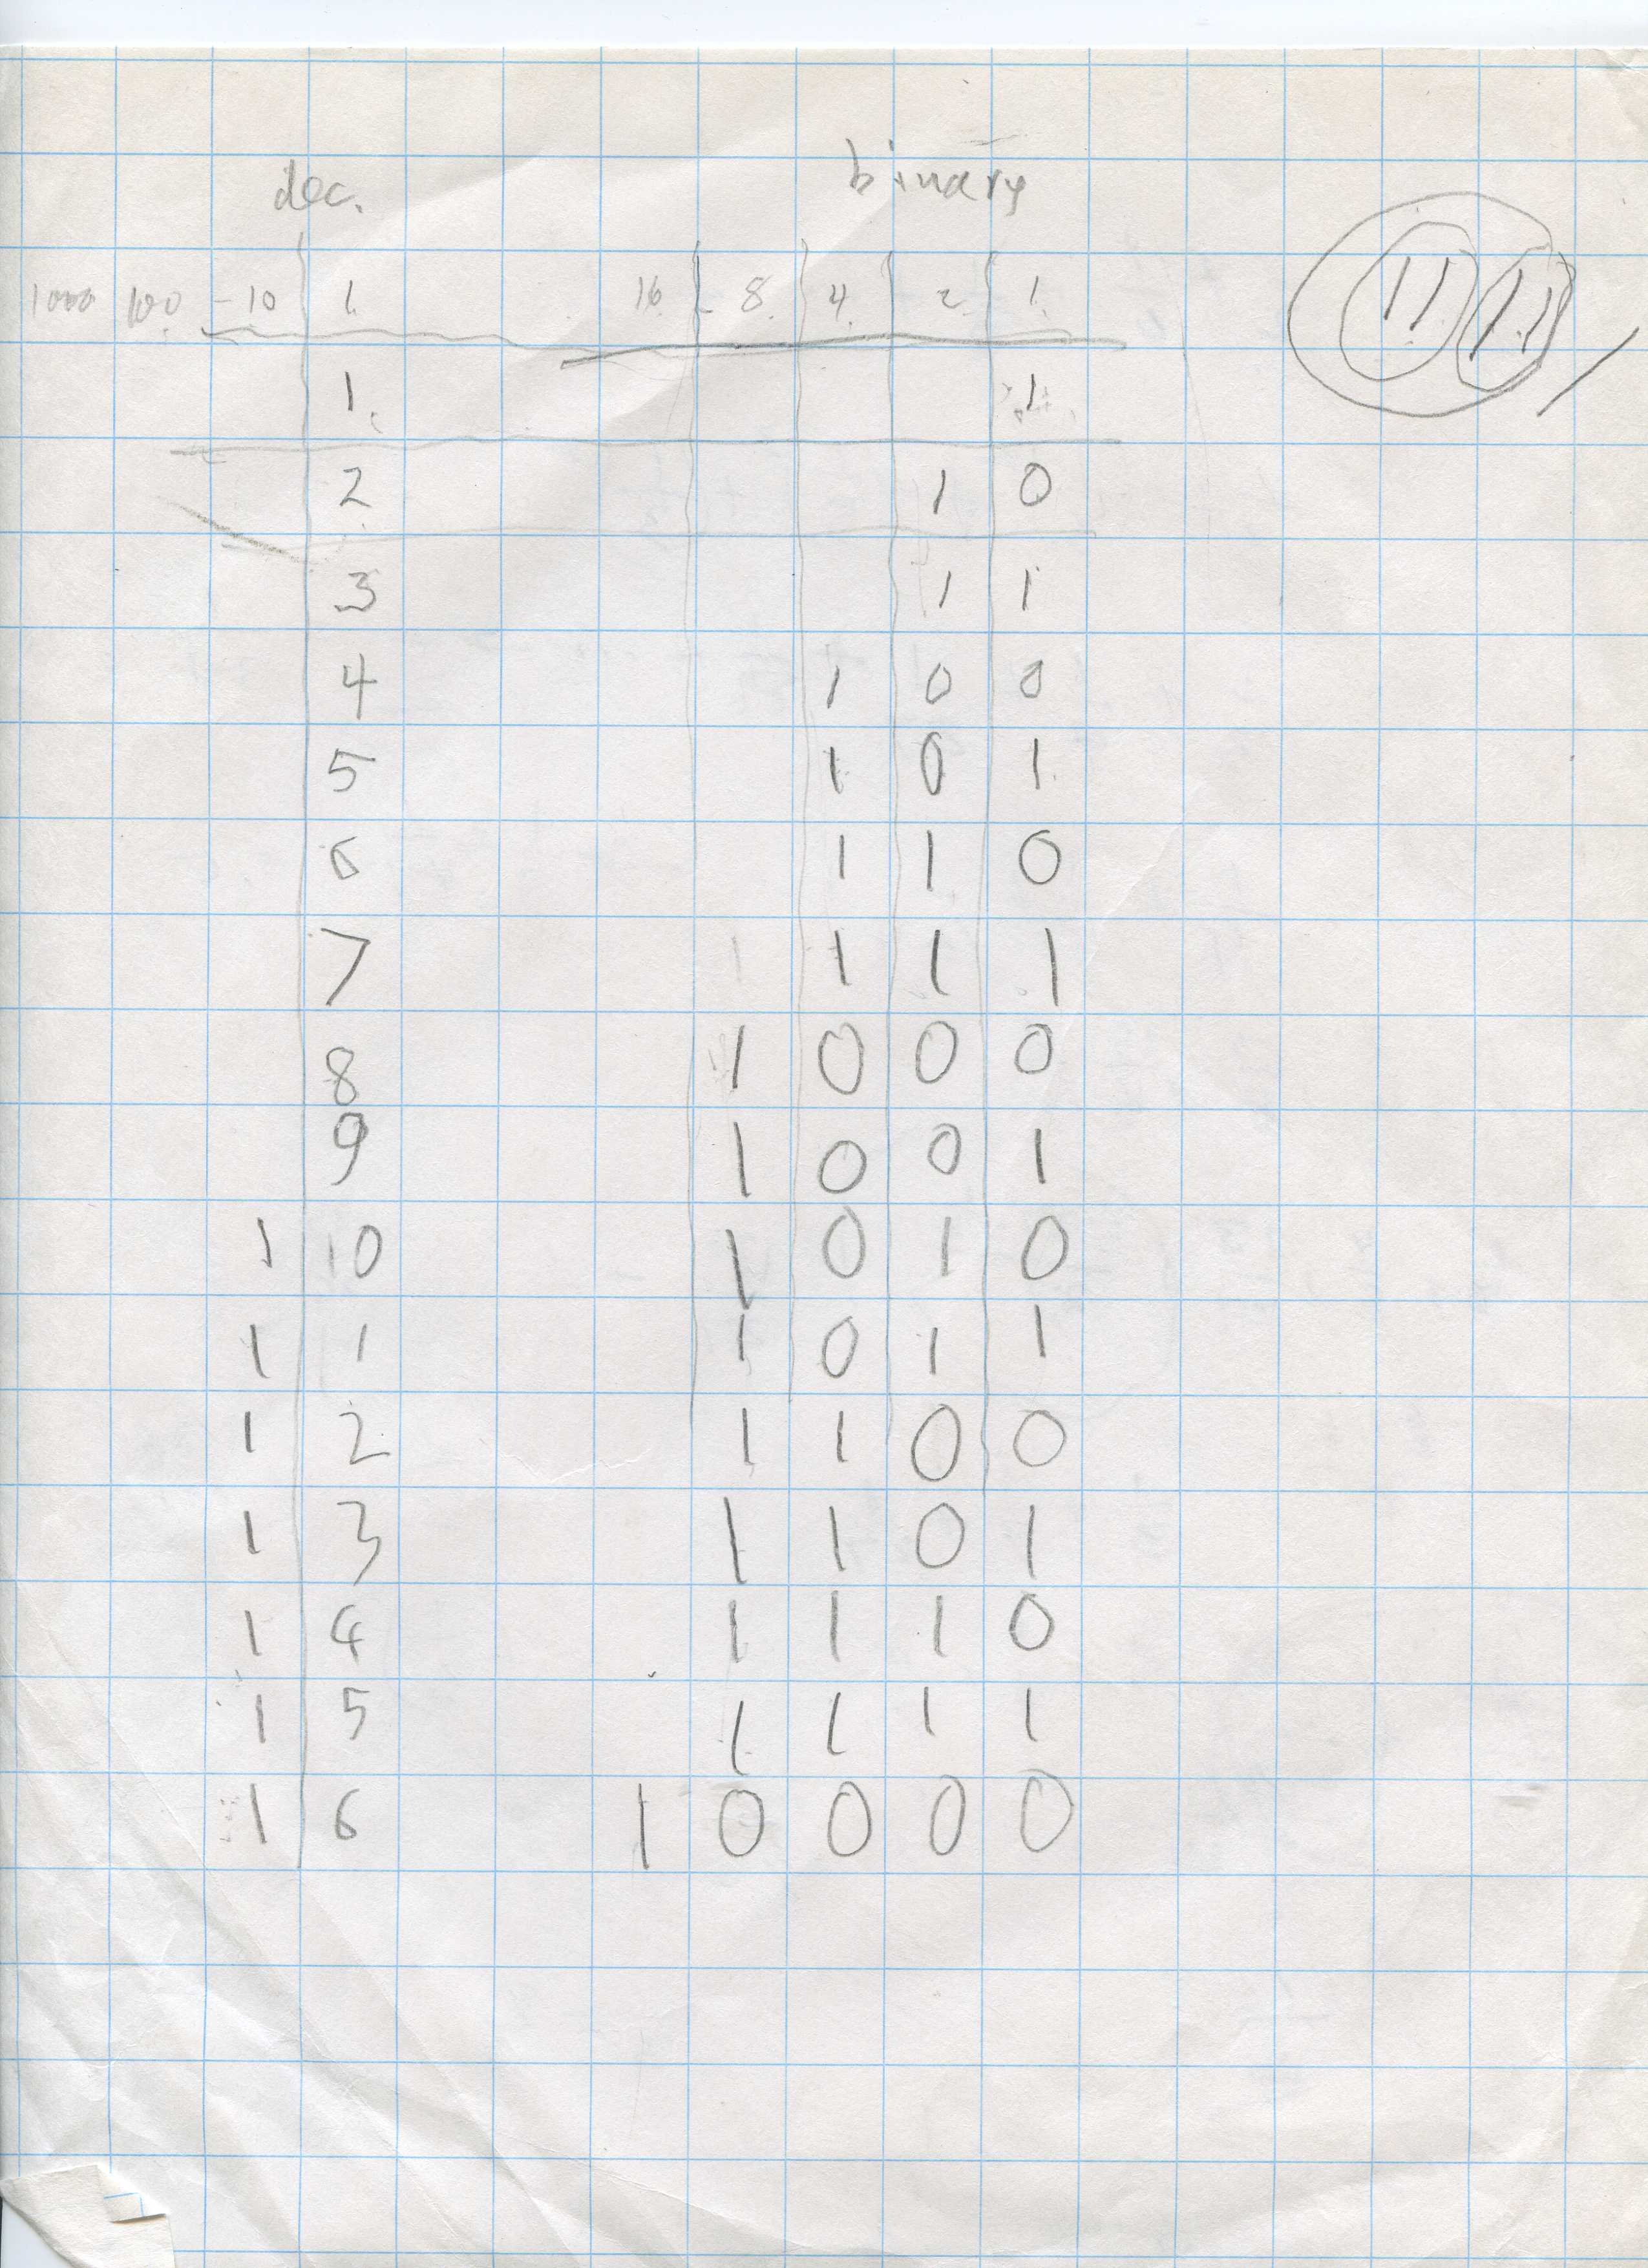 dec. binary
1000 100 10 1 16 8 4 2 1
1 1
2 1 0
3 1 1
4 1 0 0
5 1 0 1
6 1 1 0
7 1 1 1
8 1 0 0 0
9 1 0 0 1
1 10 1 0 1 0
1 1 1 0 1 1
1 2 1 1 0 0
1 3 1 1 0 1
1 4 1 1 1 0
1 5 1 1 1 1
1 6 1 0 0 0 0